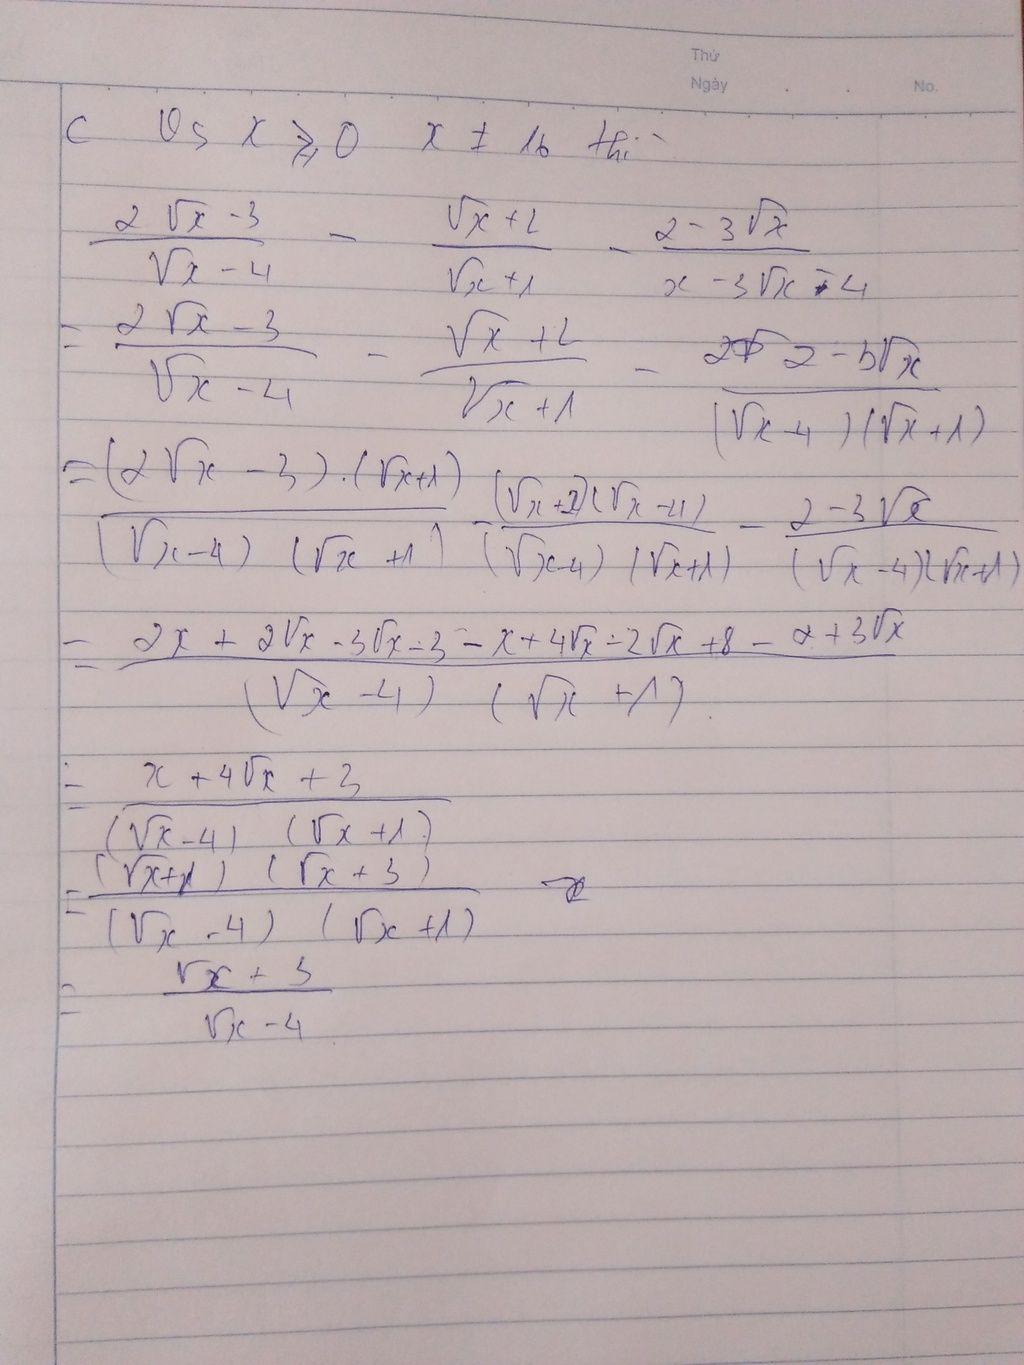 Thứ
Ngày . . No.
c Với x ⩾ 0 x ≠ 16 thì
(2√x - 3)/(√x - 4) - (√x + 2)/(√x + 1) - (2 - 3√x)/(x - 3√x - 4)
= (2√x - 3)/(√x - 4) - (√x + 2)/(√x + 1) - (2 - 3√x)/((√x - 4)(√x + 1))
= ((2√x - 3).(√x + 1))/((√x - 4)(√x + 1)) - ((√x + 2)(√x - 4))/((√x - 4)(√x + 1)) - (2 - 3√x)/((√x - 4)(√x + 1))
= (2x + 2√x - 3√x - 3 - x + 4√x - 2√x + 8 - 2 + 3√x)/((√x - 4)(√x + 1))
= (x + 4√x + 3)/((√x - 4)(√x + 1))
= ((√x + 1)(√x + 3))/((√x - 4)(√x + 1))
= (√x + 3)/(√x - 4)